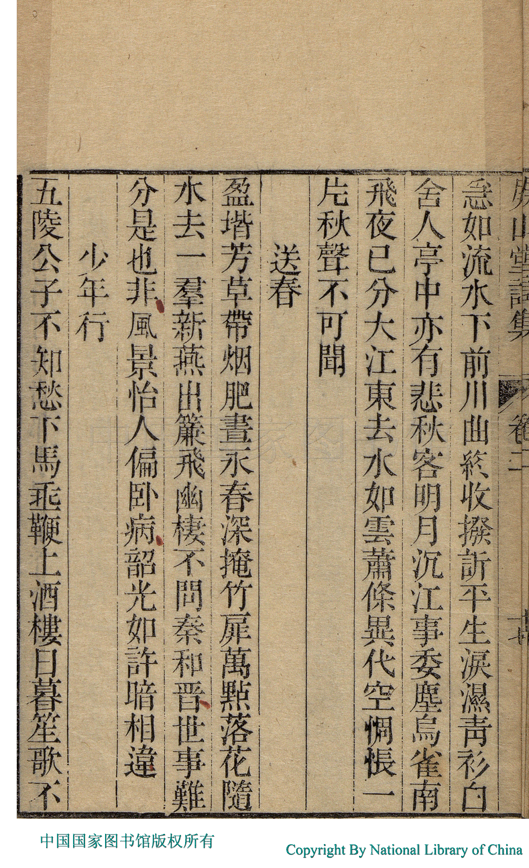 屏山堂詩集 卷二
急如流水下前川曲終收撥訢平生淚濕青衫白
舍人亭中亦有悲秋客明月沉江事委塵烏雀南
飛夜已分大江東去水如雲蕭條異代空惆悵一
片秋聲不可聞
送春
盈堦芳草帶烟肥晝永春深掩竹扉萬點落花隨
水去一羣新燕出簾飛幽棲不問秦和晉世事難
分是也非風景怡人偏卧病韶光如許暗相違
少年行
五陵公子不知愁下馬垂鞭上酒樓日暮笙歌不
中国国家图书馆版权所有
Copyright By National Library of China